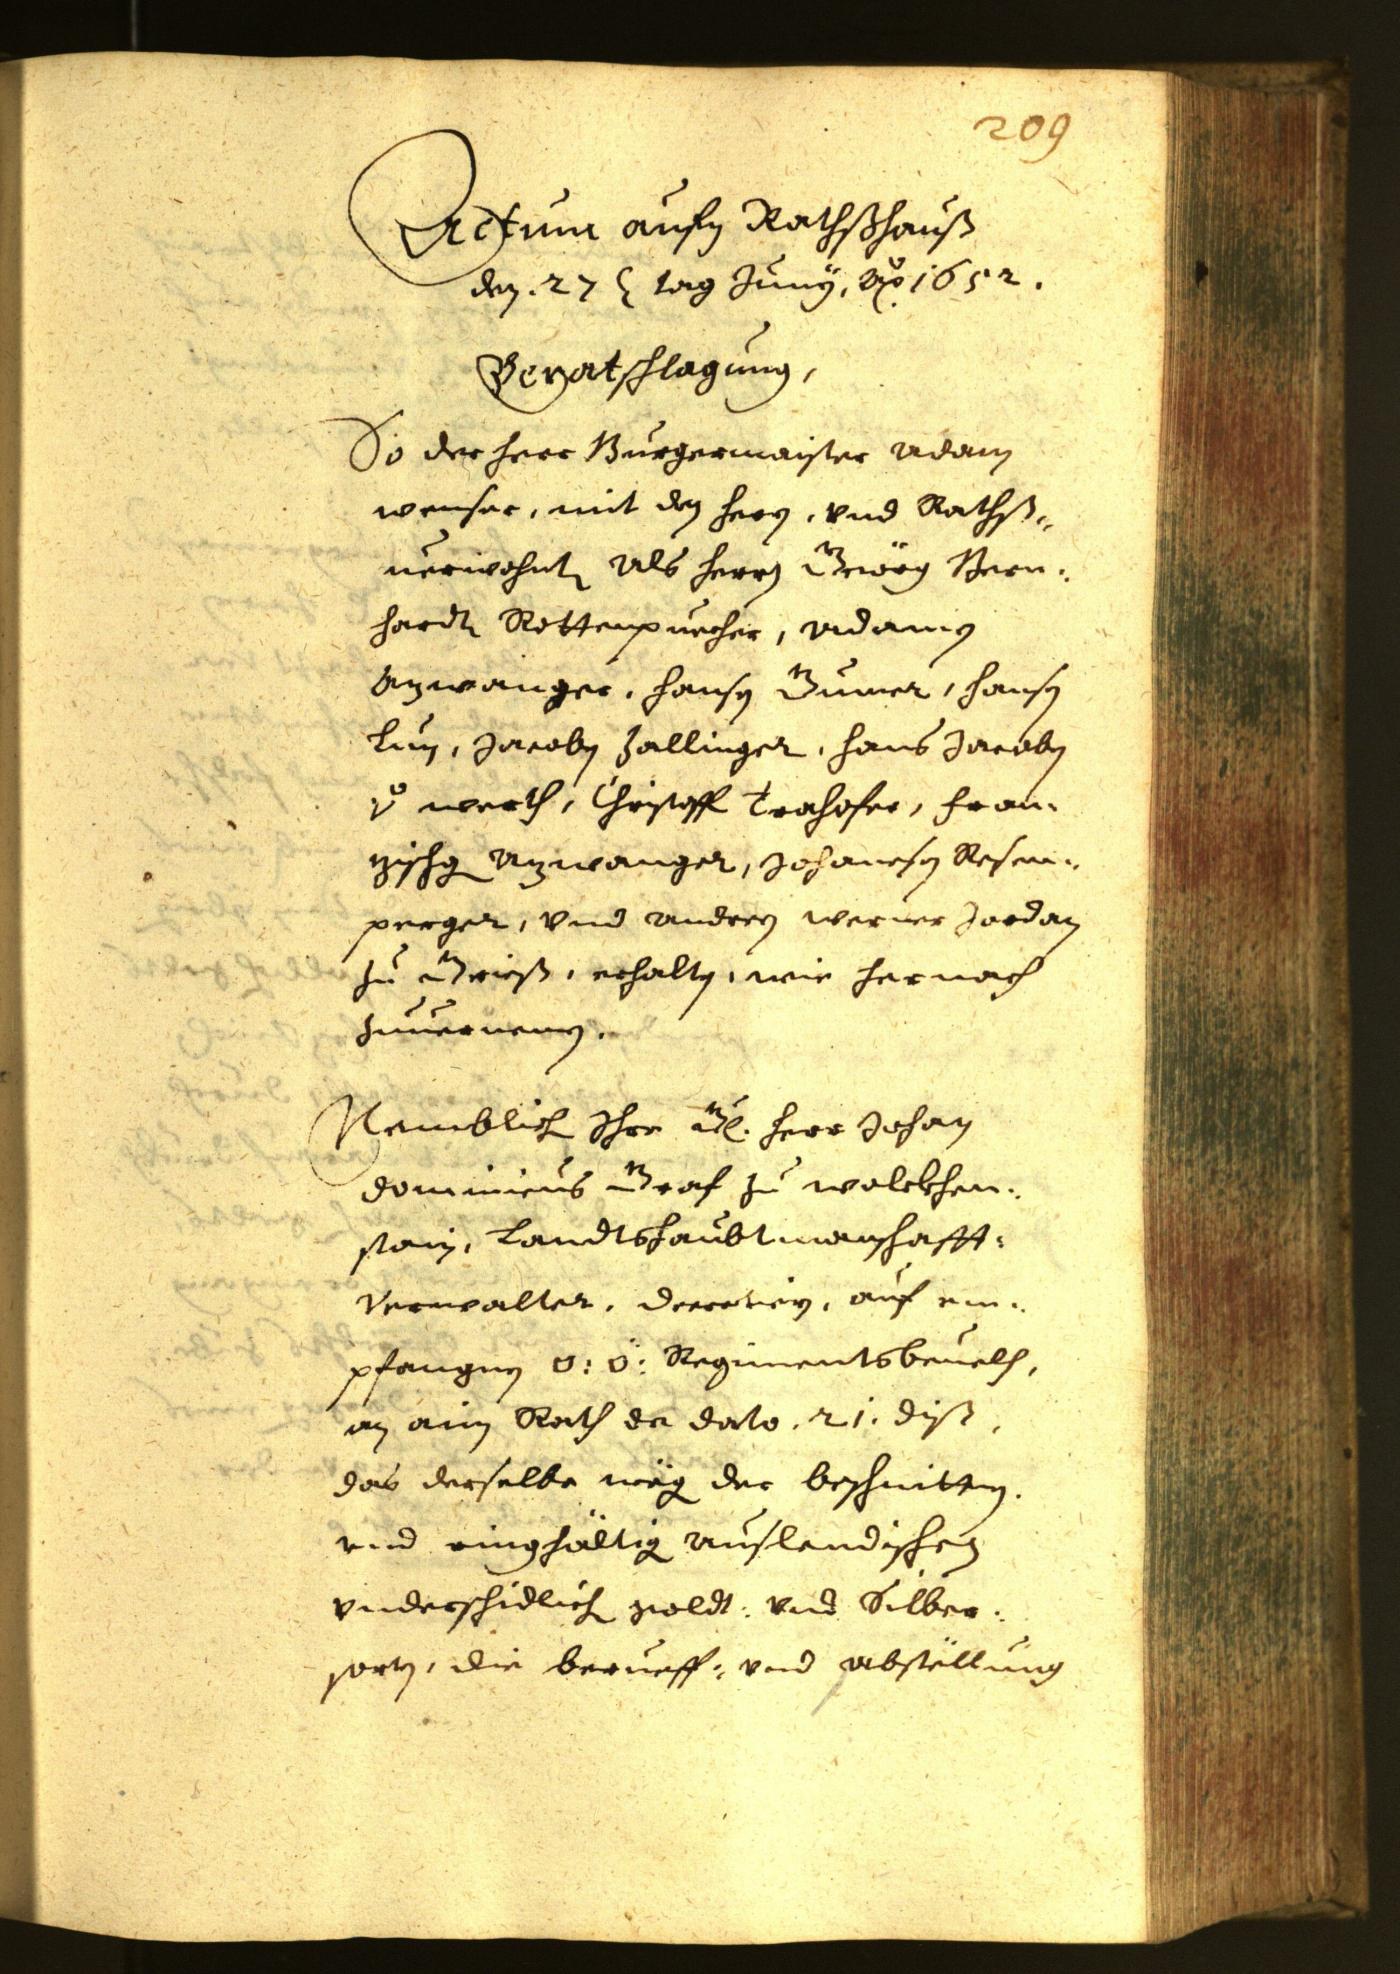 209
Actum aufn Rathßhauß
den .27 tag Juny, Ao 1652.
Beratschlagung,
So der herr Burgermaister Adam
wenser, mit den hern, vnd Rathß-
uerwohnt Als herrn Geörg Bern-
hardt Rottenpuecher, Adamen
Azwanger, hansen Gumer, hansen
Lun, Jacoben Zallinger, hans Jacoben
v werth, Christoff Trahofer, Fran-
zischg Azwanger, Johannesen Resem-
perger, vnd andren werner Jordan
zu Grieß, erhalten, wie hernach
zuuernemen.
Nemblich Ihr G. herr Johan
Dominicus Graf zu wolckhen-
stain, Landtshaubtmanschafft-
Verwalter, Decretiern, auf em-
pfangnen O: Ö: Regimentsbeuelch,
an aim Rath de dato .21. diß,
das derselbe weg der beschnitten.
vnd ringhältig Auslendischen
vnderschidlich goldt: vnd Silber-
sorten, die berueff- vnd Abstellung